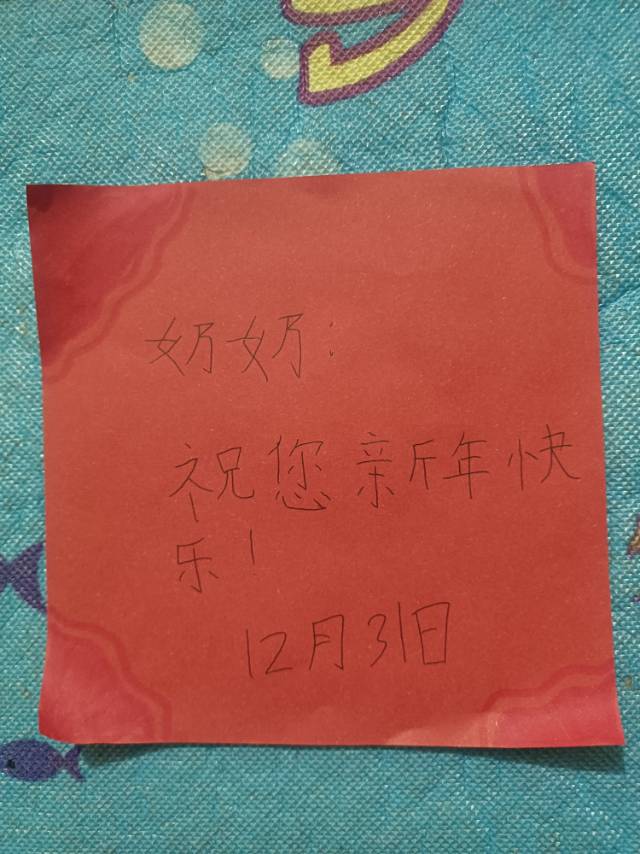 奶奶：
祝您新年快
乐！
12月31日